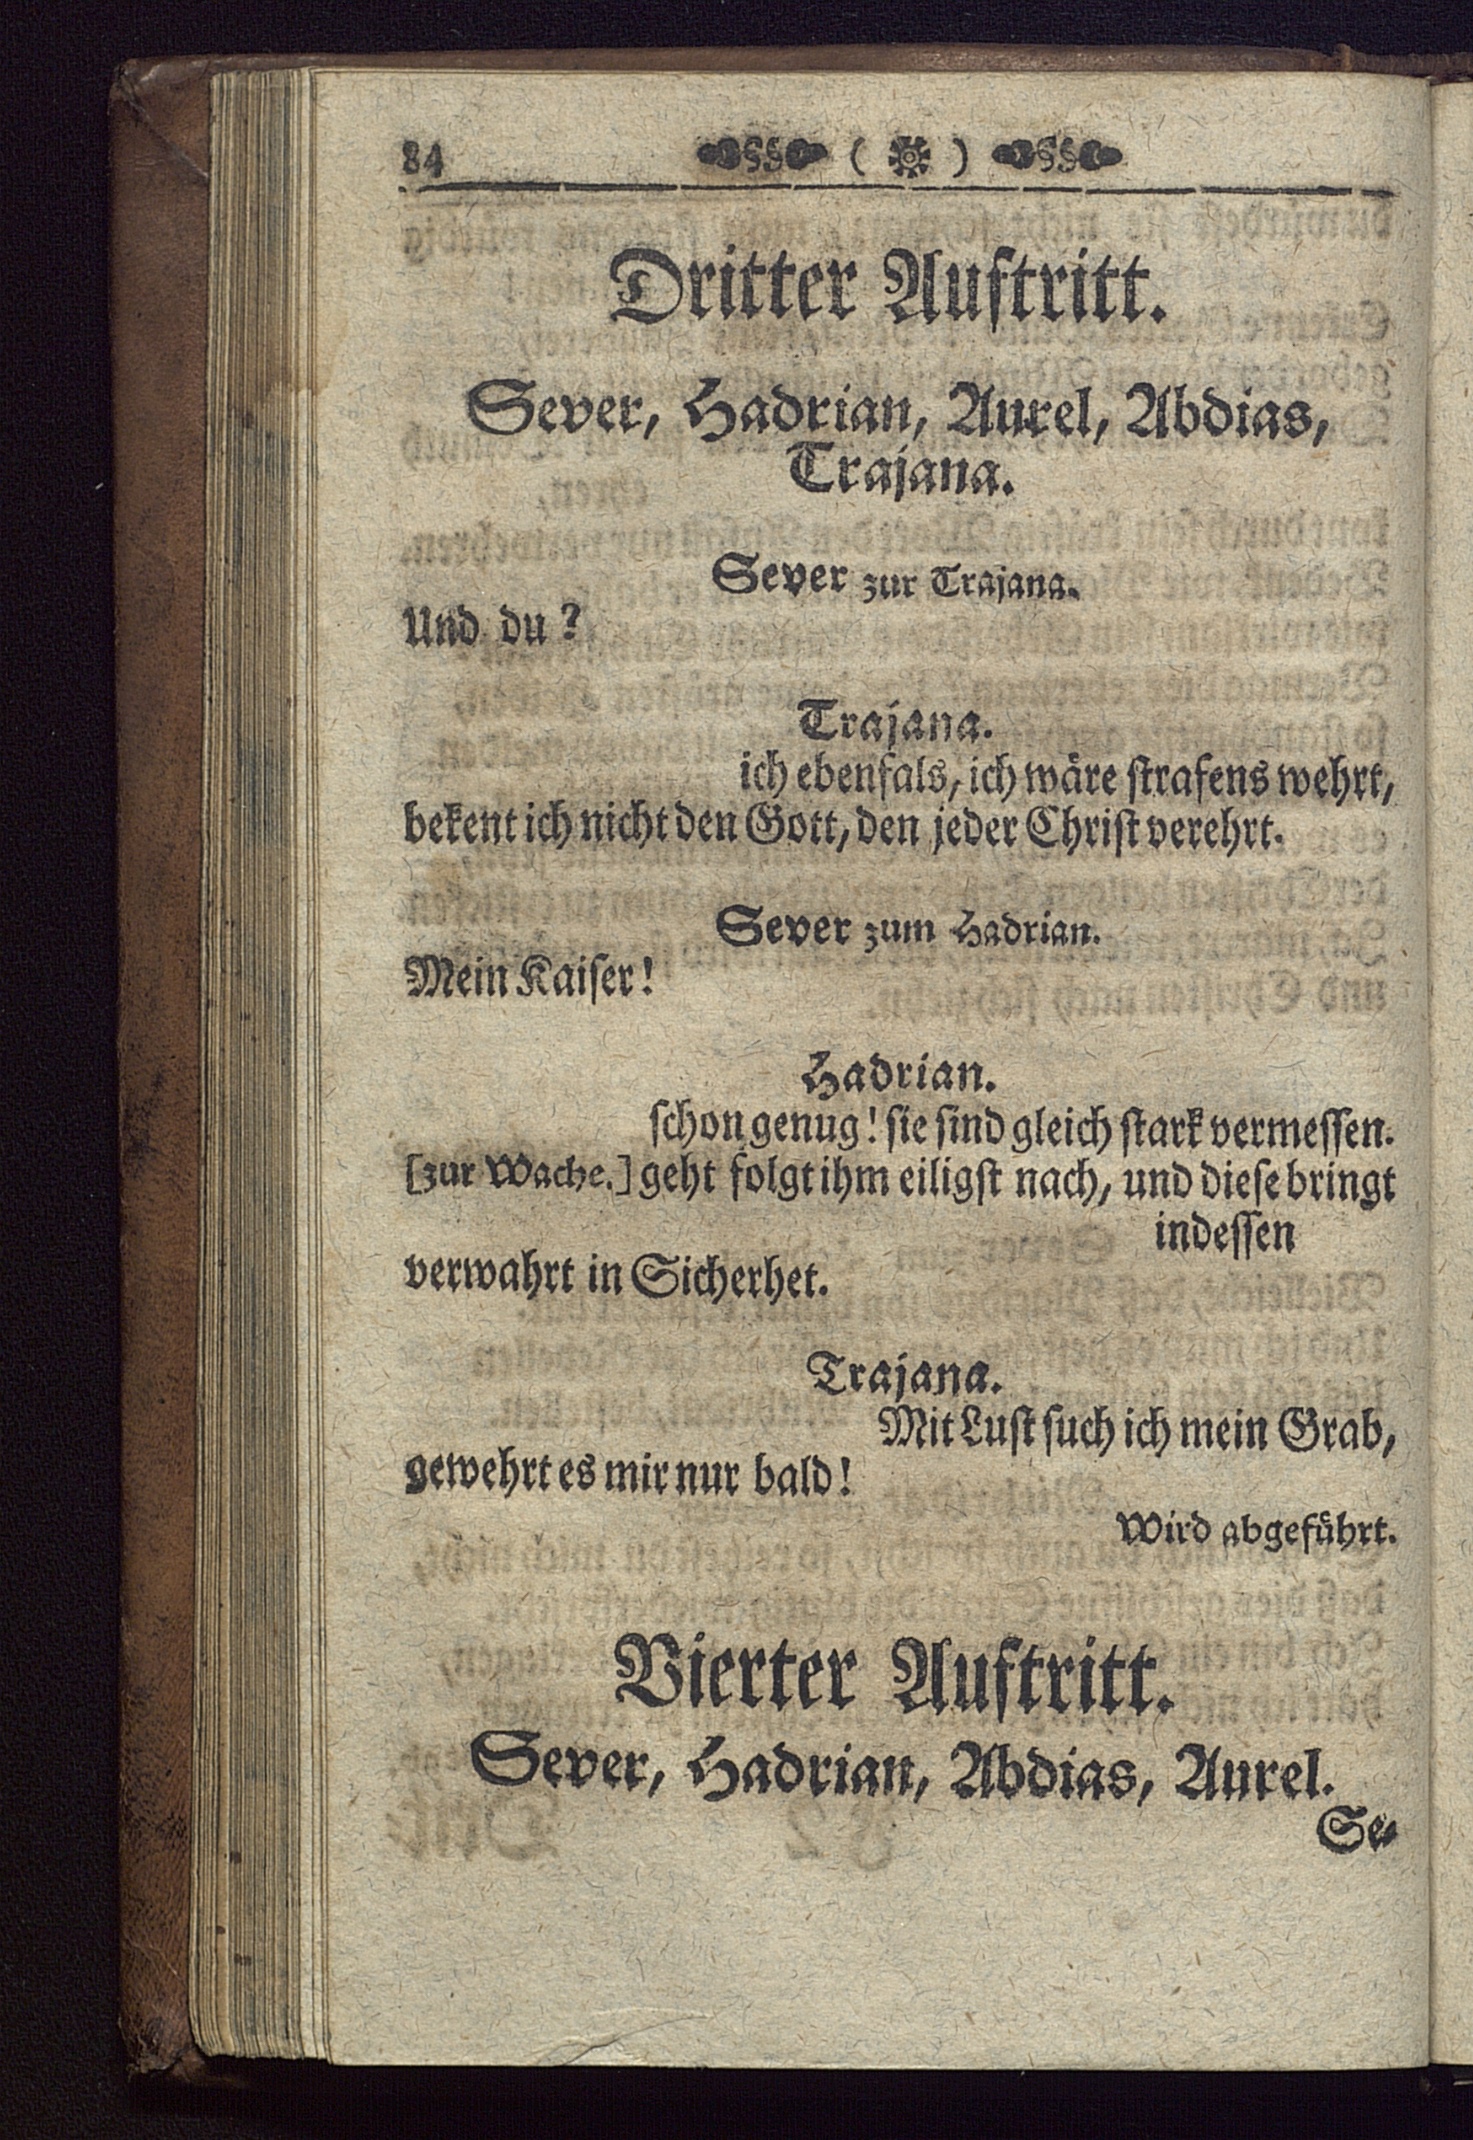 84 ( )
Dritter Auftritt.
Sever, Hadrian, Aurel, Abdias,
Trajana.
Sever zur Trajana.
Und du?
Trajana.
ich ebenfals, ich wäre ſtrafens wehrt,
bekent ich nicht den Gott, den jeder Chriſt verehrt.
Sever zum Hadrian.
Mein Kaiſer!
Hadrian.
ſchon genug! ſie ſind gleich ſtark vermeſſen.
[zur Wache.] geht folgt ihm eiligſt nach, und dieſe bringt
indeſſen
verwahrt in Sicherhet.
Trajana.
Mit Luſt ſuch ich mein Grab,
gewehrt es mir nur bald!
Wird abgeführt.
Vierter Auftritt.
Sever, Hadrian, Abdias, Aurel.
Se-